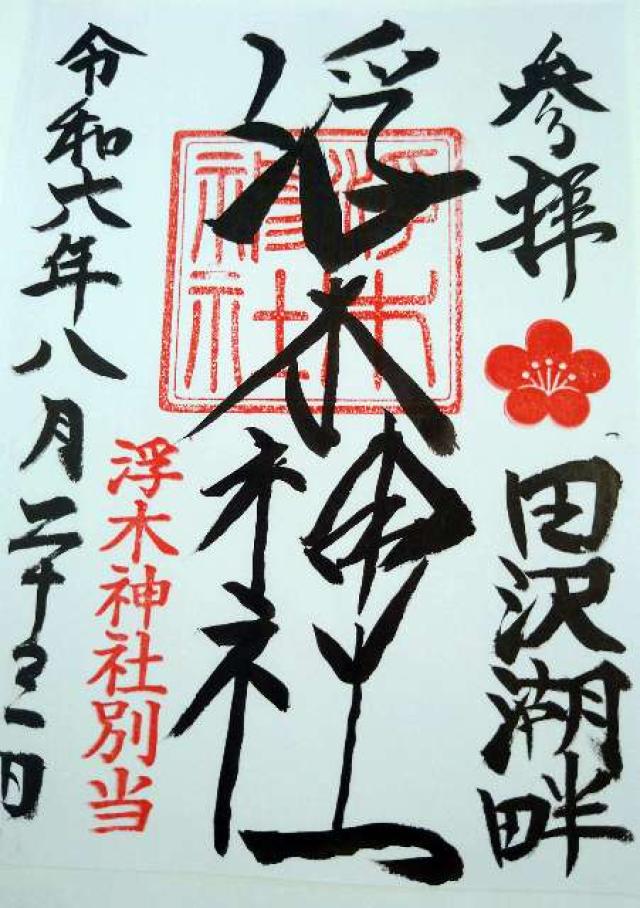 参拝 田沢湖畔
浮木神社
浮木神社
浮木神社別当
令和六年八月二十三日